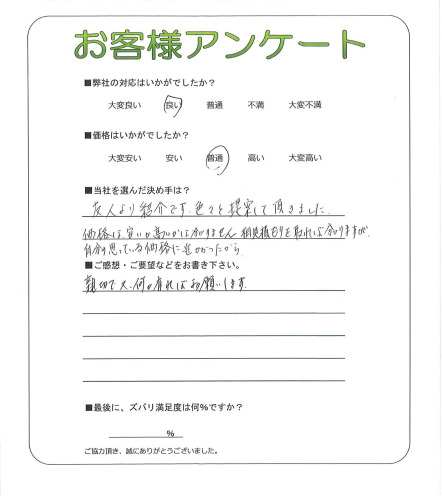 お客様アンケート
■弊社の対応はいかがでしたか？
大変良い　良い　普通　不満　大変不満
■価格はいかがでしたか？
大変安い　安い　普通　高い　大変高い
■当社を選んだ決め手は？
友人より紹介です。色々と提案して頂きました。
価格は、安いか高いかは分りません 相見積もりを取れば分りますが、
自分の思っている価格に近かったから
■ご感想・ご要望などをお書き下さい。
親切で、又、何か有ればお願いします。
■最後に、ズバリ満足度は何％ですか？
％
ご協力頂き、誠にありがとうございました。